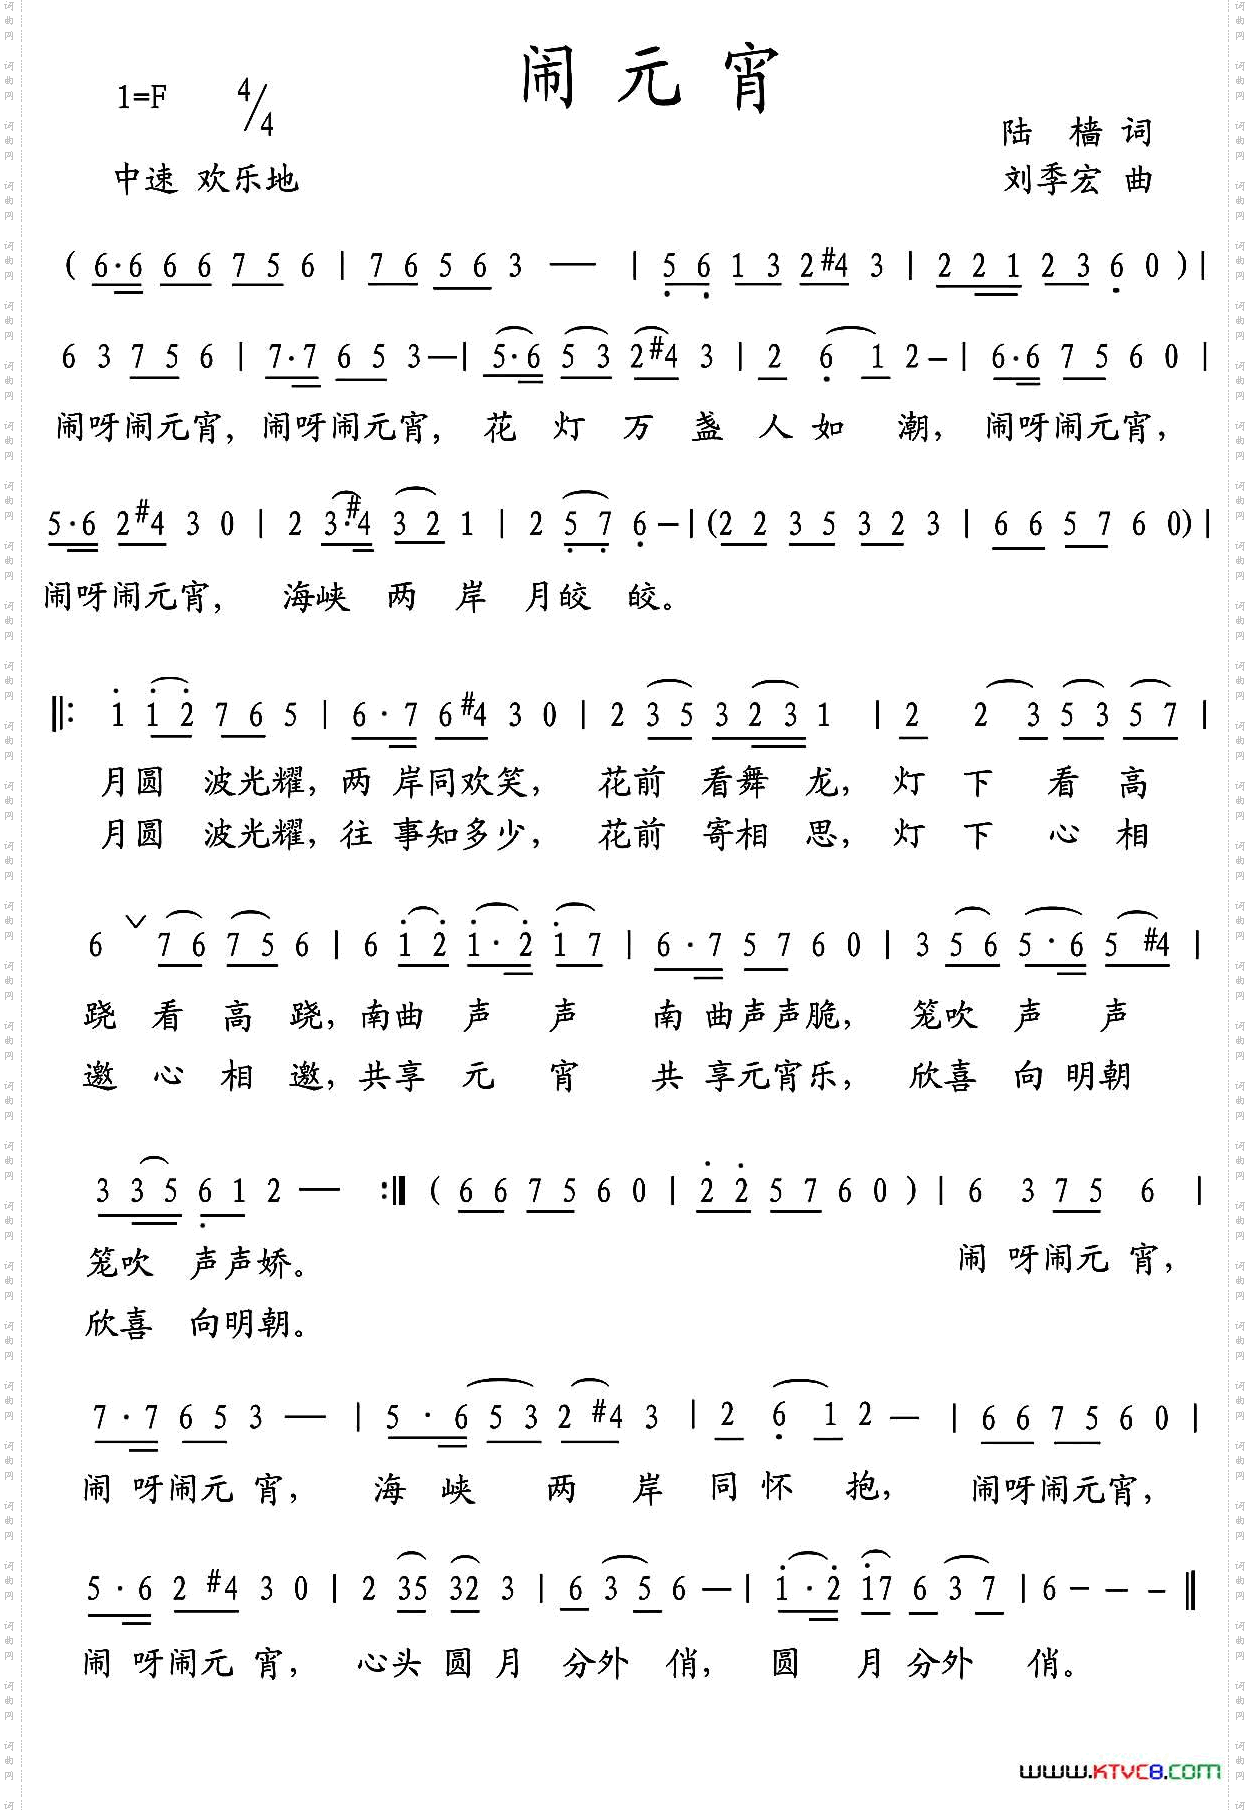 闹元宵
1=F 4/4
陆 樯 词
中速 欢乐地
刘季宏 曲
( 6·6 6 6 7 5 6 | 7 6 5 6 3 — | 5 6 1 3 2 #4 3 | 2 2 1 2 3 6 0 ) |
6 3 7 5 6 | 7·7 6 5 3 — | 5·6 5 3 2 #4 3 | 2 6 1 2 – | 6·6 7 5 6 0 |
闹呀闹元宵, 闹呀闹元宵, 花 灯 万 盏 人 如 潮, 闹呀闹元宵,
5·6 2 #4 3 0 | 2 3·#4 3 2 1 | 2 5 7 6 – | (2 2 3 5 3 2 3 | 6 6 5 7 6 0) |
闹呀闹元宵, 海峡 两 岸 月皎 皎。
‖: 1 1 2 7 6 5 | 6·7 6 #4 3 0 | 2 3 5 3 2 3 1 | 2 2 3 5 3 5 7 |
月圆 波光耀, 两 岸同欢笑, 花前 看舞 龙, 灯 下 看 高
月圆 波光耀, 往 事知多少, 花前 寄相 思, 灯 下 心 相
6 ∨ 7 6 7 5 6 | 6 1 2 1·2 1 7 | 6·7 5 7 6 0 | 3 5 6 5·6 5 #4 |
跷 看 高 跷, 南曲 声 声 南 曲声声脆, 笼吹 声 声
邀 心 相 邀, 共享 元 宵 共 享元宵乐, 欣喜 向 明朝
3 3 5 6 1 2 — :‖ ( 6 6 7 5 6 0 | 2 2 5 7 6 0 ) | 6 3 7 5 6 |
笼吹 声声娇。 闹 呀闹元 宵,
欣喜 向明朝。
7·7 6 5 3 — | 5·6 5 3 2 #4 3 | 2 6 1 2 — | 6 6 7 5 6 0 |
闹 呀闹元 宵, 海 峡 两 岸 同 怀 抱, 闹呀闹元宵,
5·6 2 #4 3 0 | 2 35 32 3 | 6 3 5 6 — | 1·2 17 6 3 7 | 6 – – – ‖
闹 呀闹元 宵, 心头 圆 月 分外 俏, 圆 月 分外 俏。
www.KTVC8.com